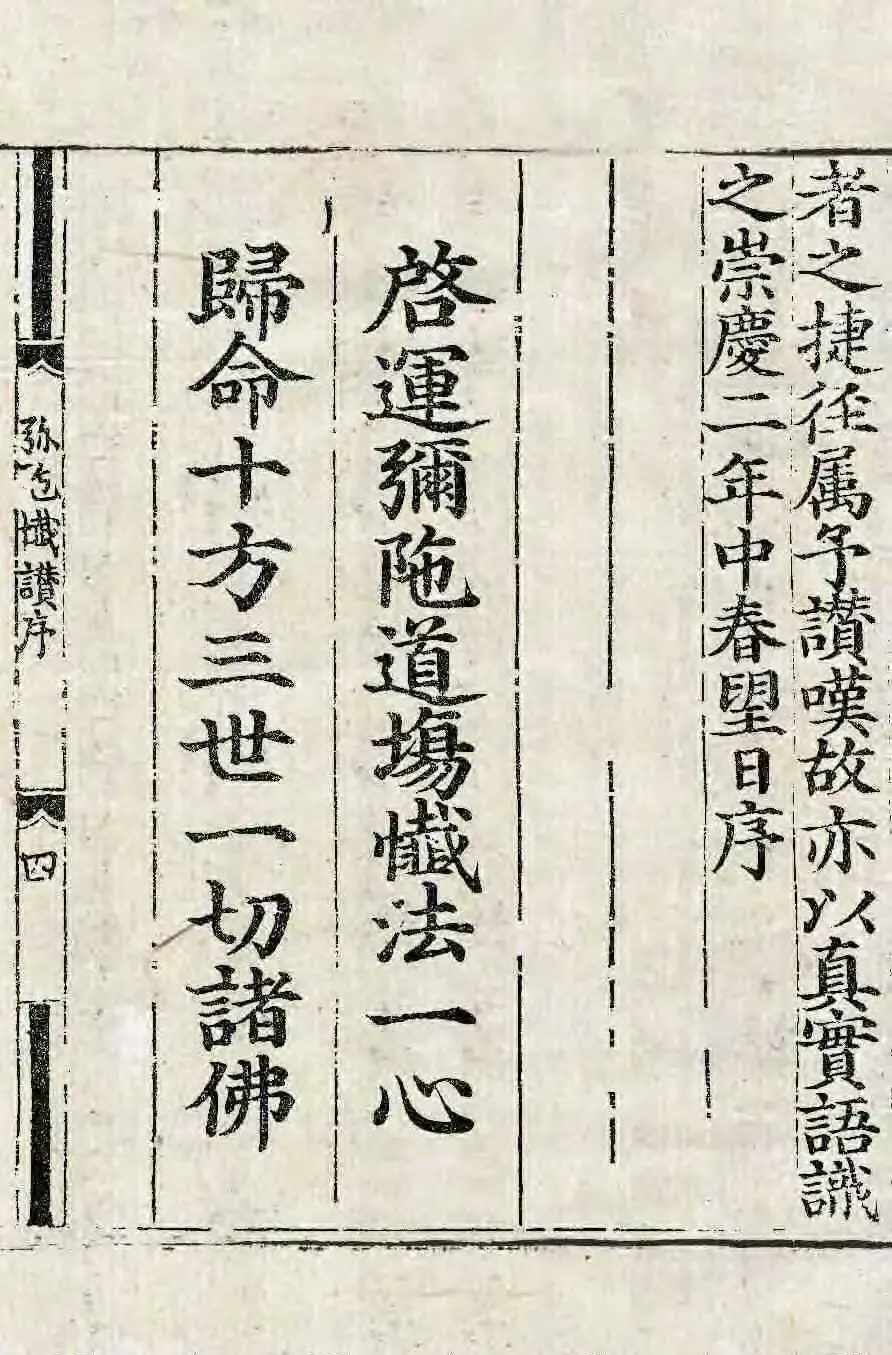 者之捷徑属予讃嘆故亦以真實語識
之崇慶二年中春朢日序
啓運彌陁道塲懴法一心
歸命十方三世一切諸佛
弥陁懴讃序
四